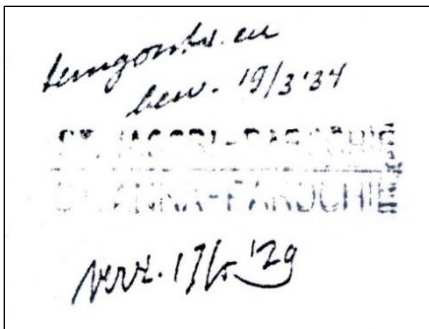 en
bew. 19/3'34
ST. JACOBI-PAROCHIE
ST. ANNA-PAROCHIE
verz. 17/5 '29